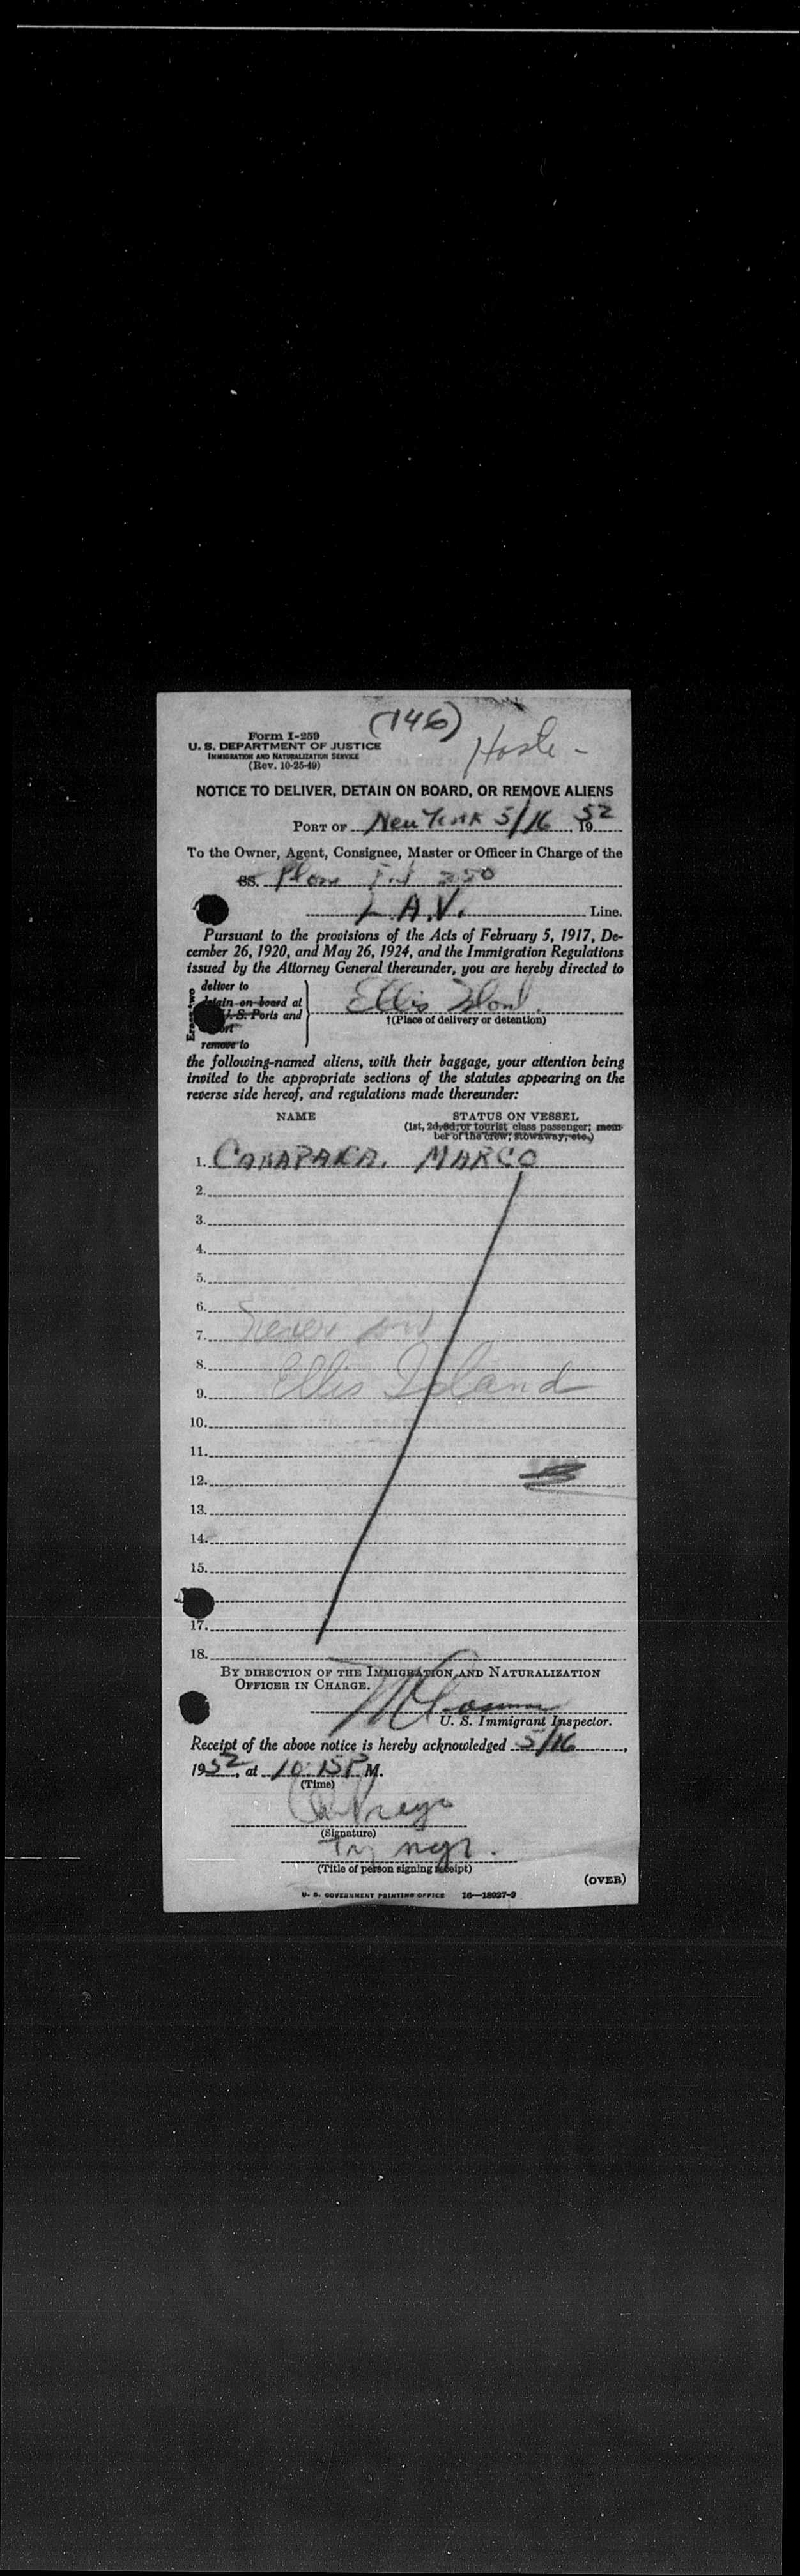 (146)
Form I-259
U. S. DEPARTMENT OF JUSTICE
IMMIGRATION AND NATURALIZATION SERVICE
(Rev. 10-25-49)
NOTICE TO DELIVER, DETAIN ON BOARD, OR REMOVE ALIENS
PORT OF New York 5/16, 1952
To the Owner, Agent, Consignee, Master or Officer in Charge of the
SS. 250
L.A.V. Line.
Pursuant to the provisions of the Acts of February 5, 1917, De-
cember 26, 1920, and May 26, 1924, and the Immigration Regulations
issued by the Attorney General thereunder, you are hereby directed to
deliver to
on board at
U. S. Ports and
remove to
Ellis Island
†(Place of delivery or detention)
the following-named aliens, with their baggage, your attention being
invited to the appropriate sections of the statutes appearing on the
reverse side hereof, and regulations made thereunder:
NAME STATUS ON VESSEL
(1st, 2d, 3d, or tourist class passenger; mem-
ber of the crew; stowaway, etc.)
1. MARCO
2.
3.
4.
5.
6.
7. never on
8.
9. Ellis Island
10.
11.
12.
13.
14.
15.
17.
18.
BY DIRECTION OF THE IMMIGRATION AND NATURALIZATION
OFFICER IN CHARGE.
U. S. Immigrant Inspector.
Receipt of the above notice is hereby acknowledged 5/16,
1952, at 10:15 P M.
(Time)
(Signature)
(Title of person signing receipt)
(OVER)
U. S. GOVERNMENT PRINTING OFFICE 16—18027-2